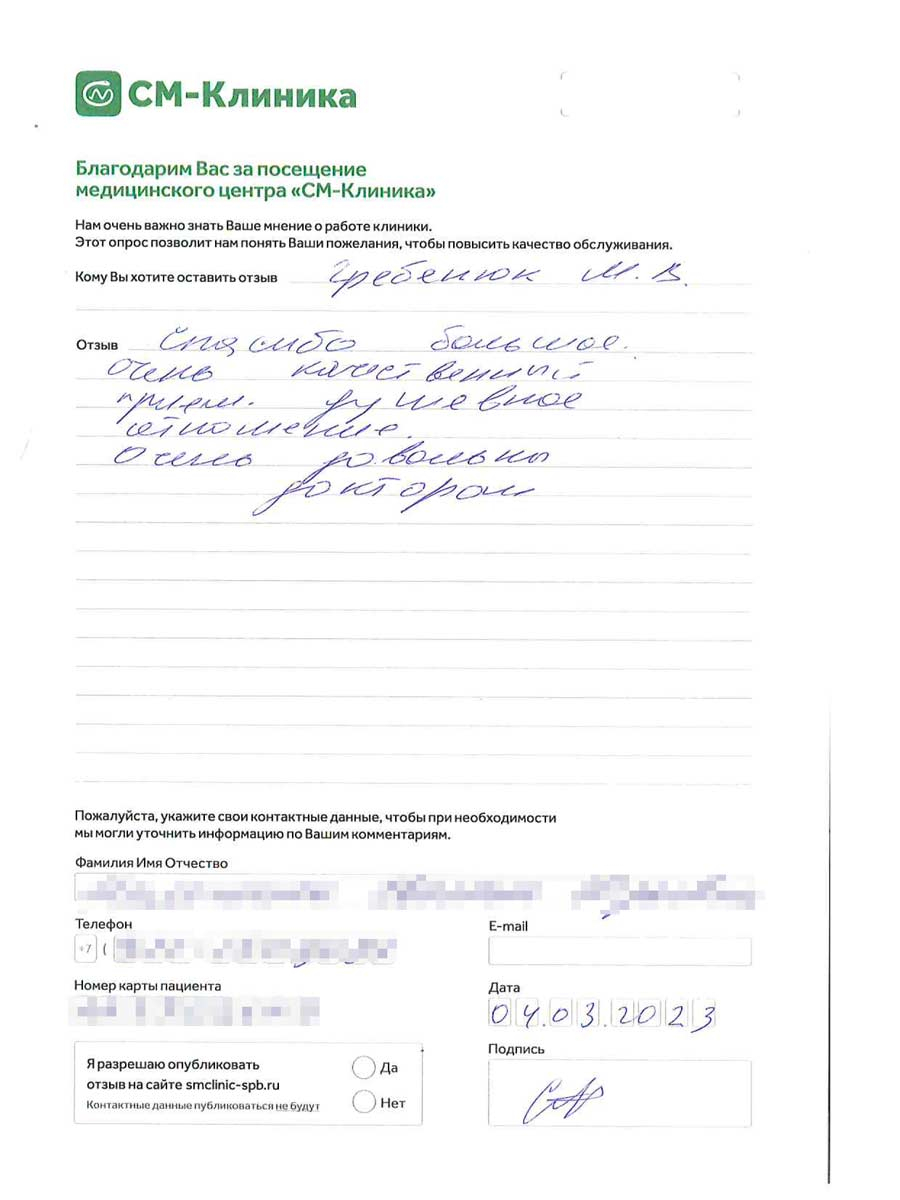 СМ-Клиника
Благодарим Вас за посещение
медицинского центра «СМ-Клиника»
Нам очень важно знать Ваше мнение о работе клиники.
Этот опрос позволит нам понять Ваши пожелания, чтобы повысить качество обслуживания.
Кому Вы хотите оставить отзыв Гребенюк М. В.
Отзыв Спасибо большое.
Очень качественный
прием. Душевное
отношение.
Очень довольны
доктором
Пожалуйста, укажите свои контактные данные, чтобы при необходимости
мы могли уточнить информацию по Вашим комментариям.
Фамилия Имя Отчество
Телефон
E-mail
+7 (
Номер карты пациента
Дата
04.03.2023
Подпись
Я разрешаю опубликовать
отзыв на сайте smclinic-spb.ru
Контактные данные публиковаться не будут
Да
Нет